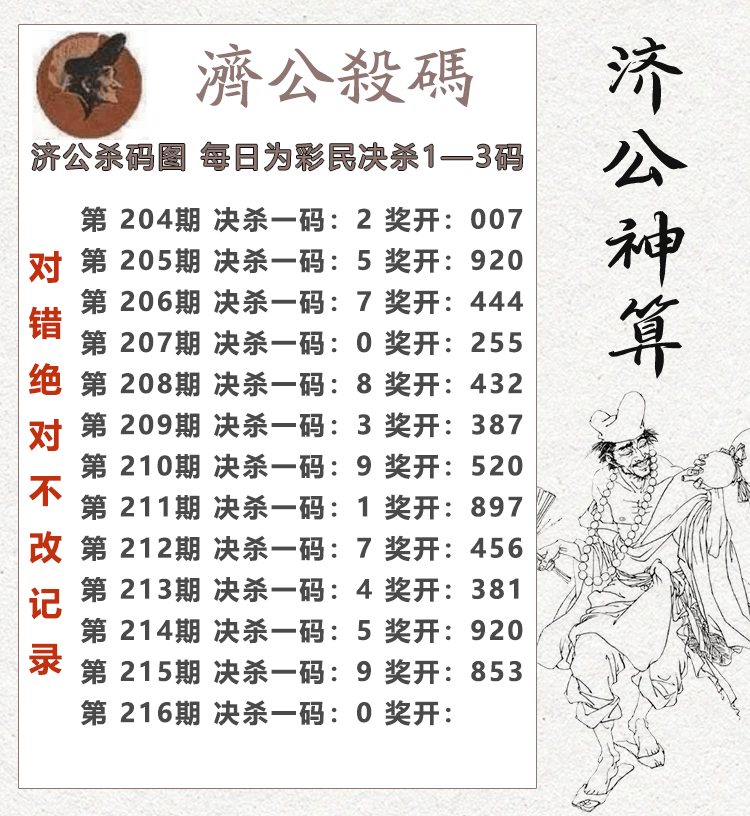 濟公殺碼
济公杀码图 每日为彩民决杀1—3码
第 204期 决杀一码：2 奖开：007
第 205期 决杀一码：5 奖开：920
第 206期 决杀一码：7 奖开：444
第 207期 决杀一码：0 奖开：255
第 208期 决杀一码：8 奖开：432
第 209期 决杀一码：3 奖开：387
第 210期 决杀一码：9 奖开：520
第 211期 决杀一码：1 奖开：897
第 212期 决杀一码：7 奖开：456
第 213期 决杀一码：4 奖开：381
第 214期 决杀一码：5 奖开：920
第 215期 决杀一码：9 奖开：853
第 216期 决杀一码：0 奖开：
对错绝对不改记录
济公神算